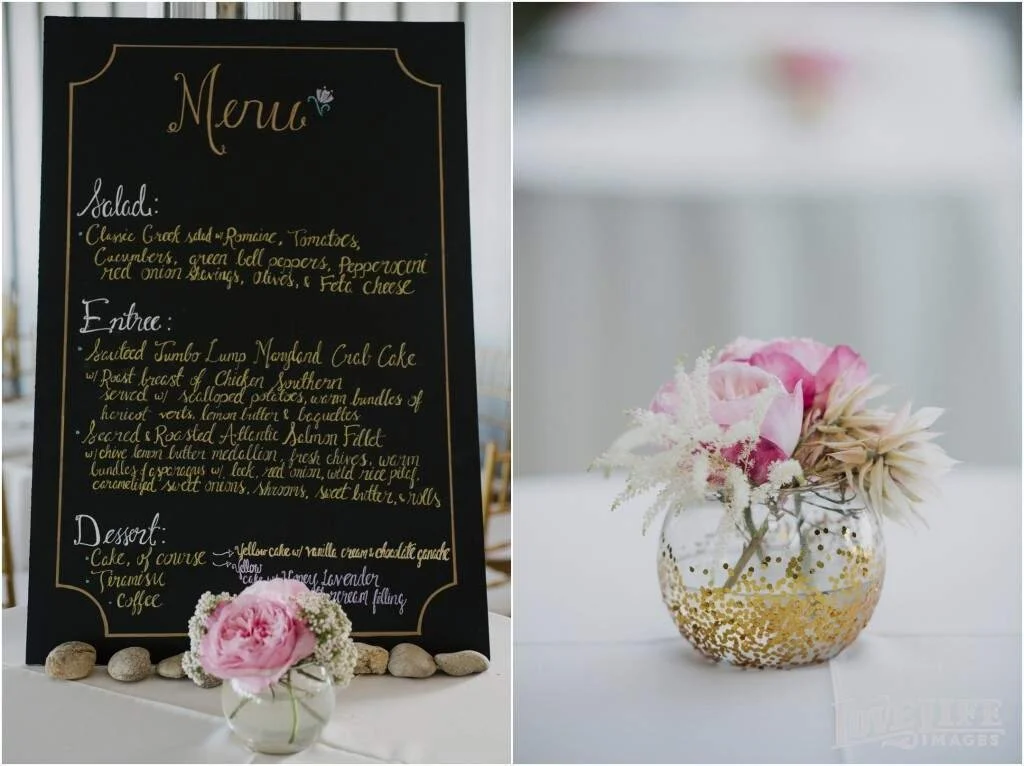 Menu
Salad:
• Classic Greek salad w/ Romaine, Tomatoes,
Cucumbers, green bell peppers, Pepperocini
red onion shavings, olives, & Feta cheese
Entree:
• Sauteed Jumbo Lump Maryland Crab Cake
w/ Roast breast of Chicken Southern
served w/ scalloped potatoes, warm bundles of
haricot verts, lemon butter & baguettes
• Seared & Roasted Atlantic Salmon Fillet
w/ chive lemon butter medallion, fresh chives, warm
bundles of asparagus w/ leek, red onion, wild rice pilaf,
caramelized sweet onions, shrooms, sweet butter, & rolls
Dessert:
• Cake, of course → Yellow cake w/ vanilla cream & chocolate ganache
→ Yellow
cake w/ Honey Lavender
buttercream filling
• Tiramisu
• Coffee
LIVE LIFE
IMAGES